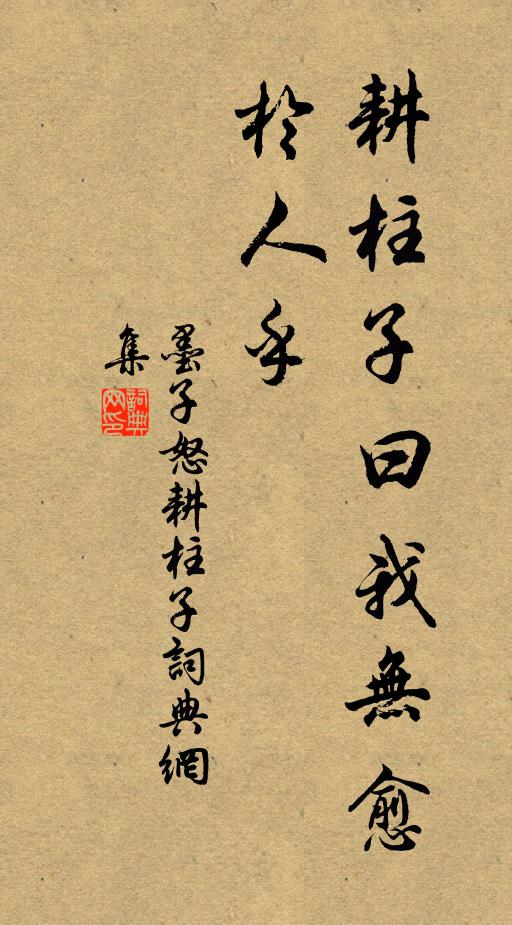 耕柱子曰我無愈
於人乎
墨子怒耕柱子詞典網
集
詞典
网印